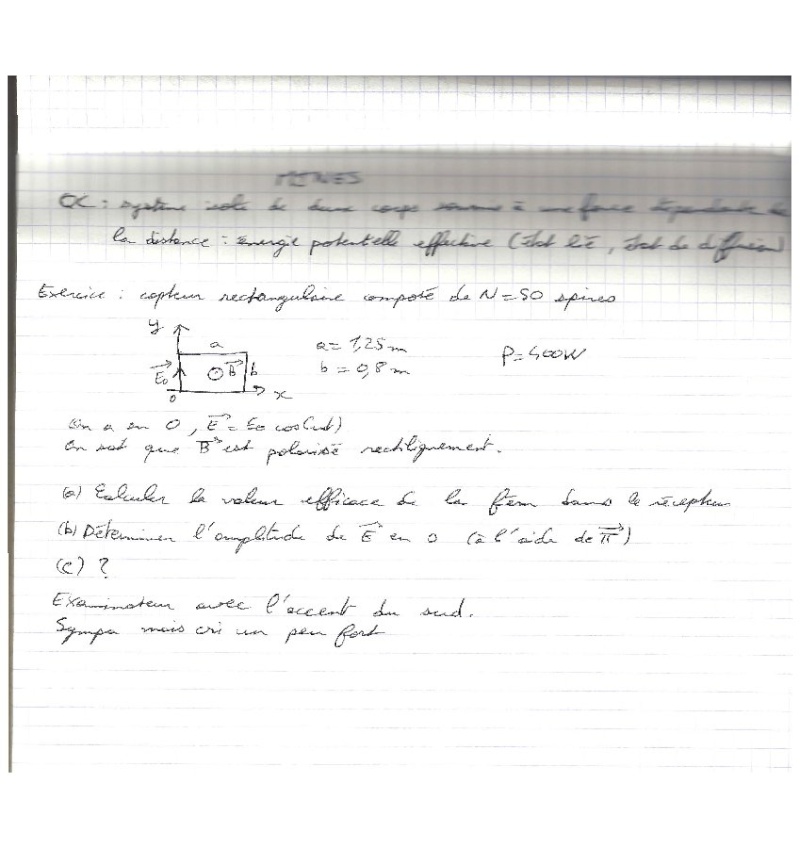 MINES
QC : système isolé de deux corps soumis à une force dépendante de
la distance : énergie potentielle effective (état lié, état de diffusion)
Exercice : capteur rectangulaire composé de N = 50 spires
y
a
a = 1,25 m
P = 400W
E₀ B b
b = 0,8 m
0 x
On a en O, E = E₀ cos(ωt)
On sait que B est polarisé rectilignement.
(a) Calculer la valeur efficace de la fém dans le récepteur
(b) Déterminer l'amplitude de E en O (à l'aide de π)
(c) ?
Examinateur avec l'accent du sud.
Sympa mais cri un peu fort